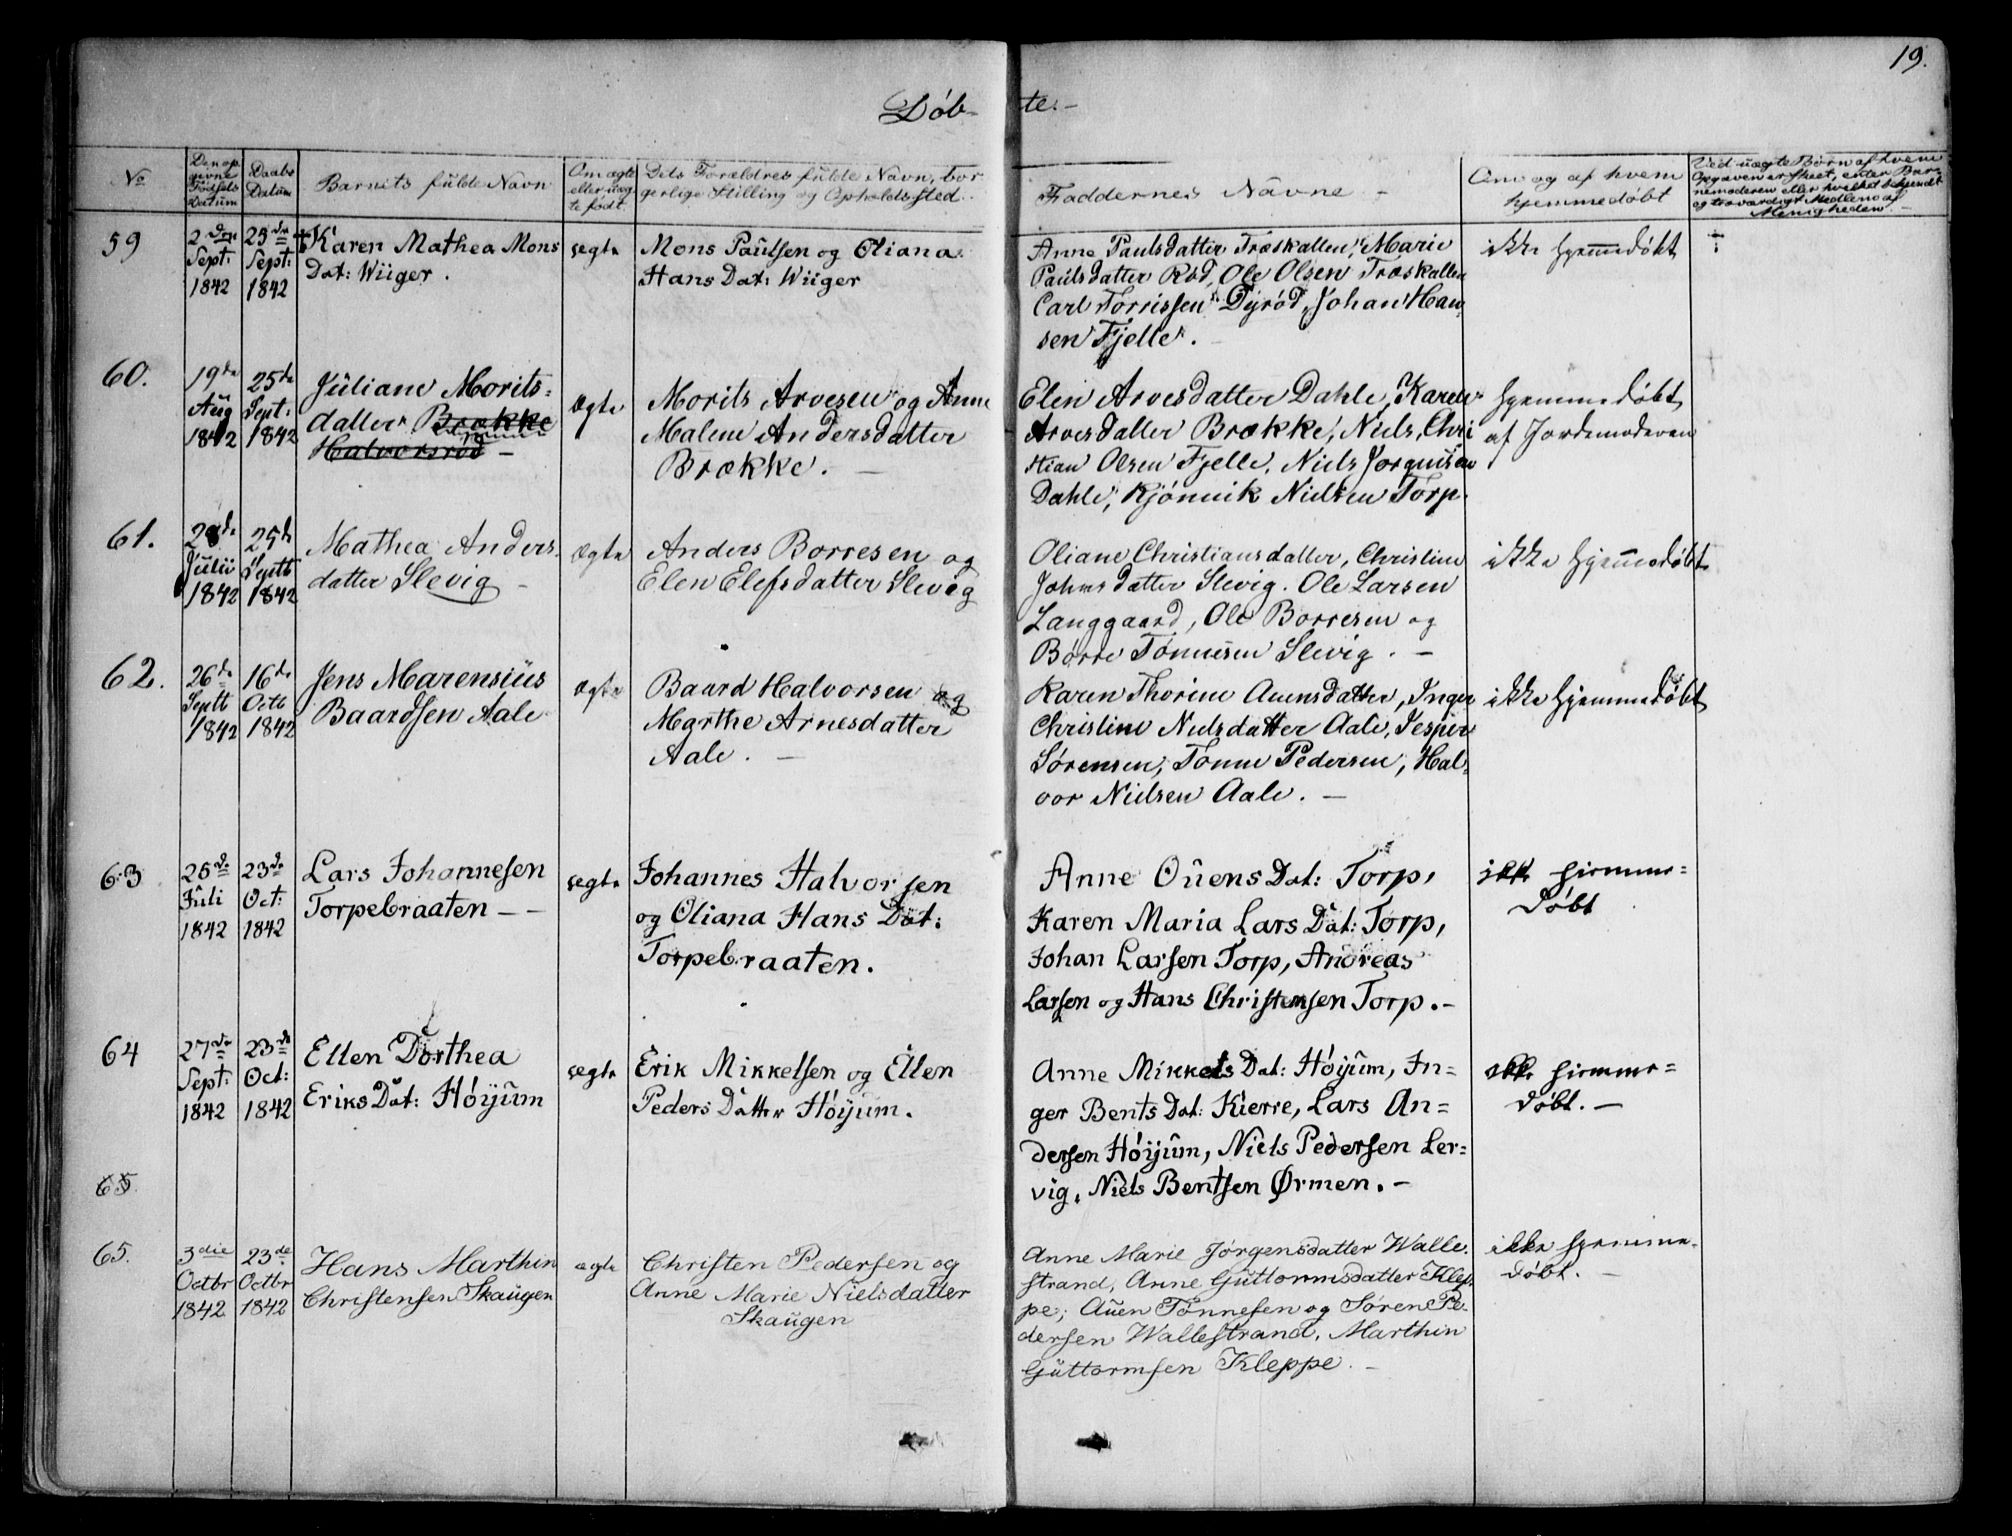 19.
Döb-
te.-
No
Den op
givne
Födsels
Datum
Daabs
Datum
Barnets fulde Navn
Om ægte
eller uæg-
te födt.
Dets Forældres fulde Navn, bor
gerlige Stilling og Opholdssted.
Faddernes Navne -
Om og af hvem
hjemmedöbt
Ved uægte Børn af hvem
Opgaven er skeet, enten Bar-
nemoderen eller hvilket bekjendt
og troværdigt Medlem af
Menigheden.
59
2den
Sept:
1842
25de
Sept:
1842
Karen Mathea Mons
Dat: Wiiger.
ægte
Mons Paulsen og Oliana
Hans Dat: Wiiger
Anne Pauls datter Træskallen, Marie
Pauls datter Röd, Ole Olsen Træskallen
Carl Torrissen Dyröd, Johan Han,
sen Fjelle.
ikke hjemmedöbt
60.
19de
Aug
1842
25de
Sept:
1842
Juliane Morits-
datter Brække
Halvorsröd -
ægte
Morits Arvesen og Anne
Malene Andersdatter
Brække. -
Elen Arvesdatter Dahle, Karen
Arvesdatter Brække, Niels Chri
stian Olsen Fjelle, Niels Jörgensen
Dahle, Kjönnik Nielsen Torp.
hjemmedöbt
af Jordemoderen
61.
28de
Julii
1842
25de
Septb
1842
Mathea Anders,
datter Slevig -
ægte
Anders Borresen og
Elen Elefsdatter Slevig
Oliane Christiansdatter, Christine
Johnsdatter Slevig. Ole Larsen
Langgaard, Ole Borresen og
Börre Tönnesen Slevig. -
ikke hjemmedöbt
62.
26de
Septb
1842
16de
Octb
1842
Jens Marensius
Baardsen Aale
ægte
Baard Halvorsen og
Marthe Arnesdatter
Aale. -
Karen Thorine Auensdatter, Inger
Christine Nielsdatter Aale, Jesper
Sörensen, Tönne Pedersen, Hal,
vor Nielsen Aale. -
ikke hjemmedöbt
63
25de
Juli
1842
23de
Oct:
1842
Lars Johannesen
Torpebraaten - -
ægte
Johannes Halvorsen
og Oliana Hans Dat:
Torpebraaten.
Anne Ouens Dat: Torp,
Karen Maria Lars Dat: Torp,
Johan Larsen Torp, Andreas
Larsen og Hans Christensen Torp. -
ikke hiemme=
döbt
64
27de
Sept:
1842
23de
Oct:
1842
Ellen Dorthea
Eriks Dat: Höijum
ægte
Erik Mikkelsen og Ellen
Peders Datter Höijum.
Anne Mikkels Dat: Höijum, In=
ger Bents Dat: Kierre, Lars An=
dersen Höijum, Niels Pedersen Ler=
vig, Niels Bentsen Ørmen. -
ikke hiemme=
döbt. -
65
65.
3die
Octbr
1842
23de
Octbr
1842
Hans Marthin
Christensen Skaugen
ægte
Christen Pedersen og
Anne Marie Nielsdatter
Skaugen
Anne Marie Jørgensdatter Walle,
strand, Anne Guttormsdatter Klep,
pe, Auen Tönnesen og Sören Pe,
dersen Wallestrand, Marthin
Guttormsen Kleppe. -
ikke hjemme-
döbt. -